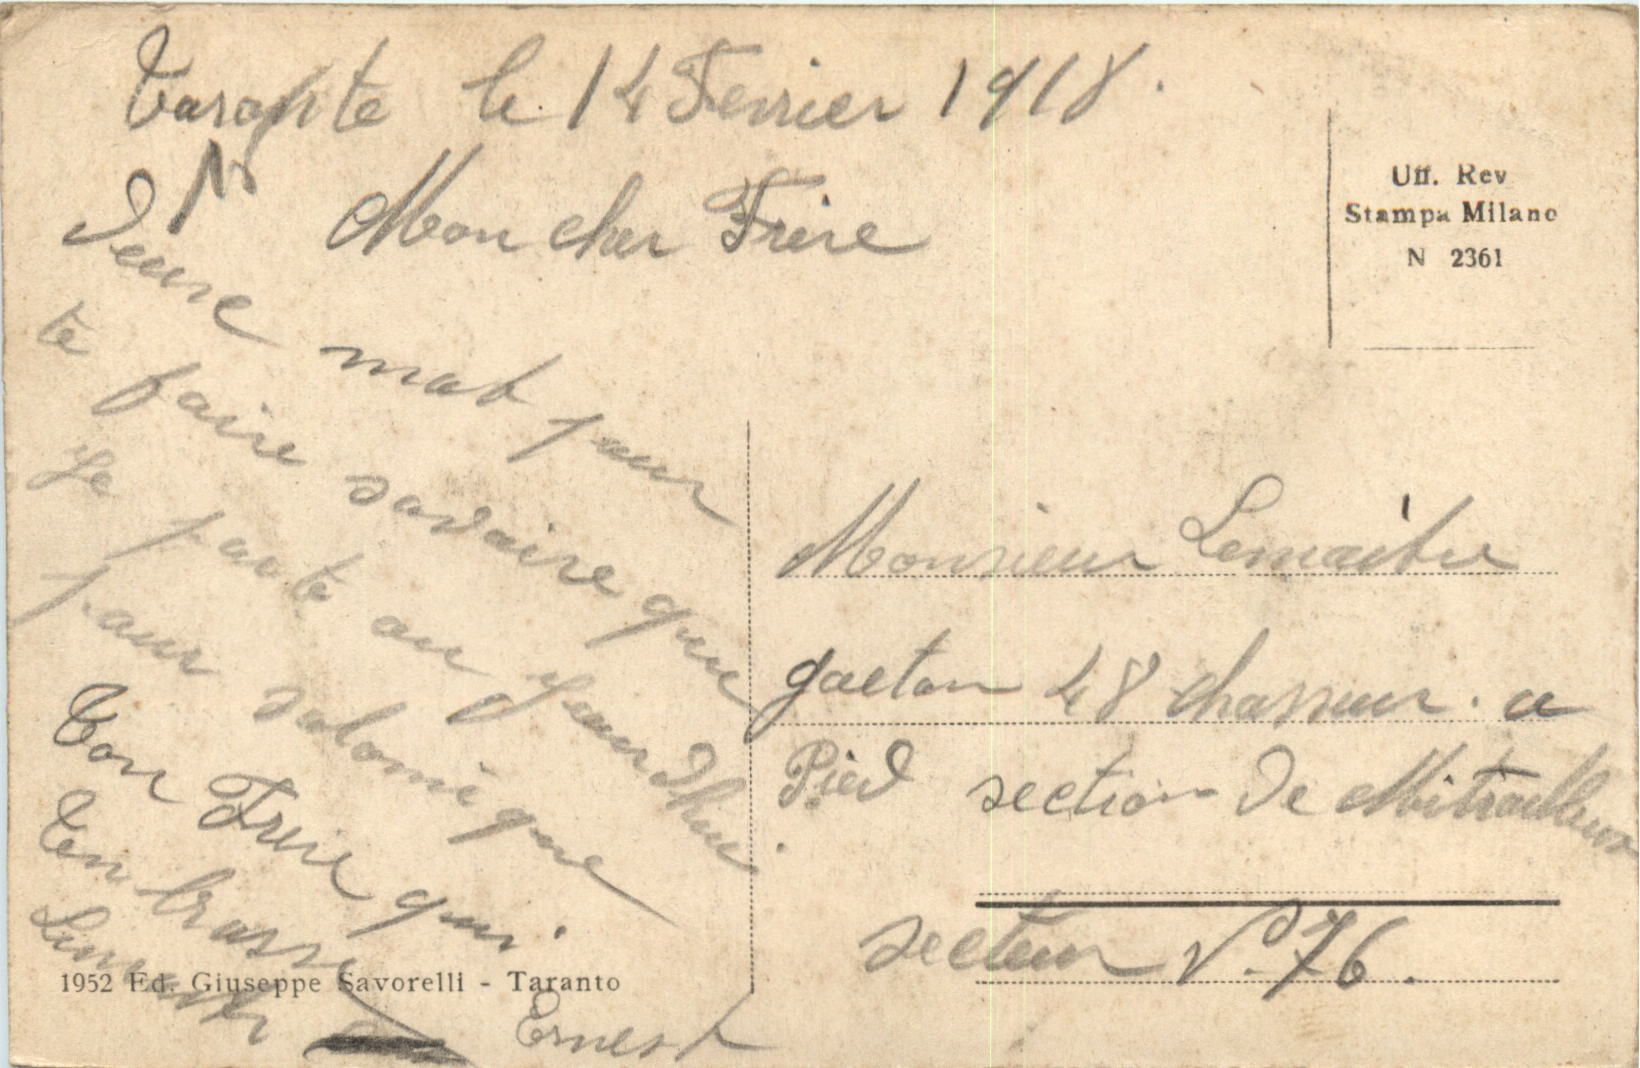 Tarante le 14 Fevrier 1918.
Mon cher Frere
Deuse mot pour
te faire savoire que
Je parte au Jourdhui
pour salonique
Ton Frere qui
Embrasse
Ernest
1952 Ed. Giuseppe Savorelli - Taranto
Uff. Rev
Stampa Milano
N 2361
Monsieur Lemaitre
gaeton 48 chasseur. a
Pied section de Mitrailleur
secteur P. 76.